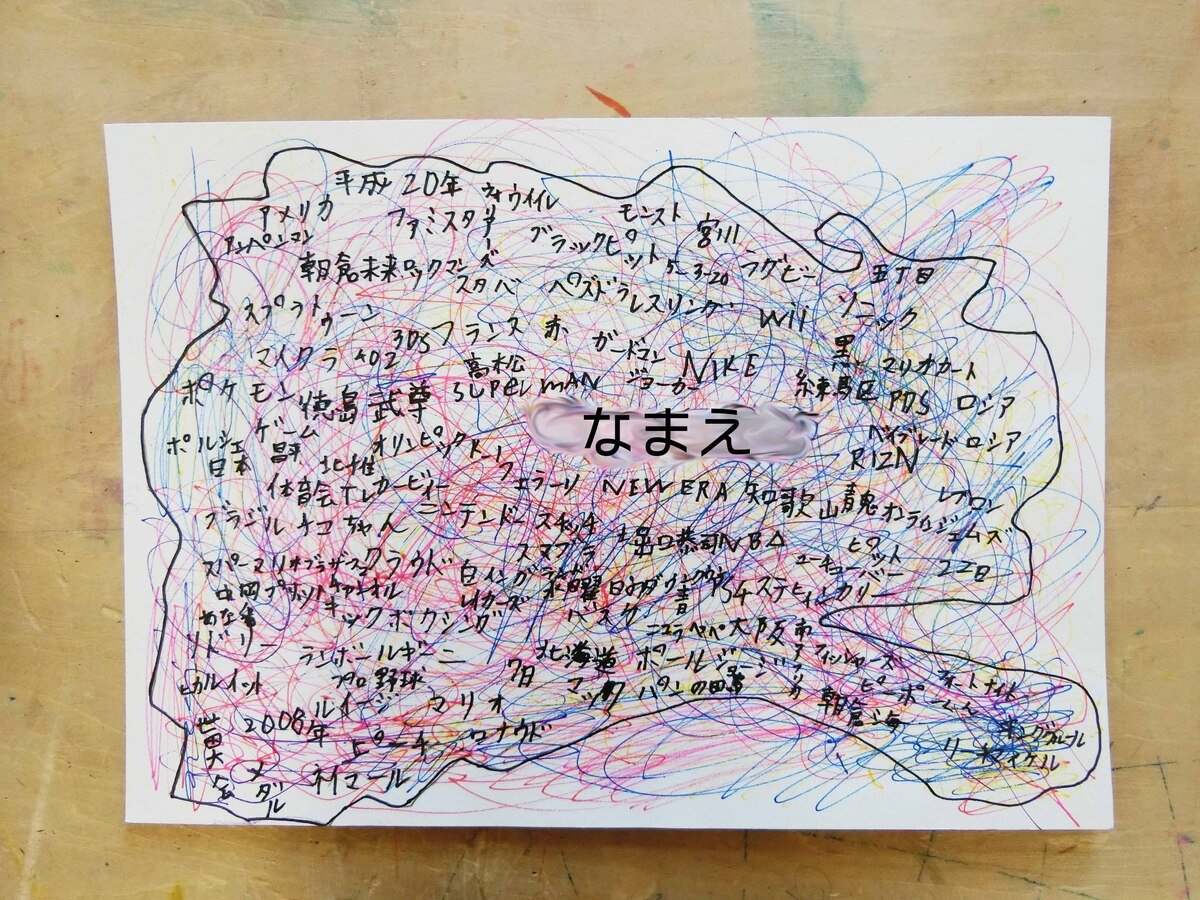 平成20年 ウイイレ
アメリカ ファミスタ モンスト 宮川
アンパンマン ブラックピット
朝倉未来 ロックマン 5-3-20 ラグビー 五丁目
スタバ レスリング ソニック
スプラトゥーン Wii
3DS フランス 赤 ガードマン 黒
マイクラ 402 高松 NIKE マリオカート
ポケモン SUPERMAN ジョーカー 練馬区 ロシア
徳島 武尊
ゲーム なまえ
ポルシェ オリンピック ベイブレード ロシア
日本 昌平 RIZN
体育会TV カービィー フェラーリ NEW ERA レブロン
ブラジル ナコちゃん ニンテンドースイッチ 和歌山 青 オンライン ジェームズ
スマブラ 堀口恭司 NBA
スーパーマリオブラザーズ クラウド 白 イングランド ユーチューバー
中国 水曜日のダウンタウン PS4 ステフィンカリー
キックボクシング レイカーズ バスケ
ソドリー 大阪
ランボールギーニ 北海道 ポールジョージ 南アフリカ フィッシャーズ
ヒカル プロ野球 7月 マック パン フォートナイト
ルイージ マリオ ピーポーくん
2008年 朝倉海
世田谷 ピーチ ロナウド
金メダル ネイマール